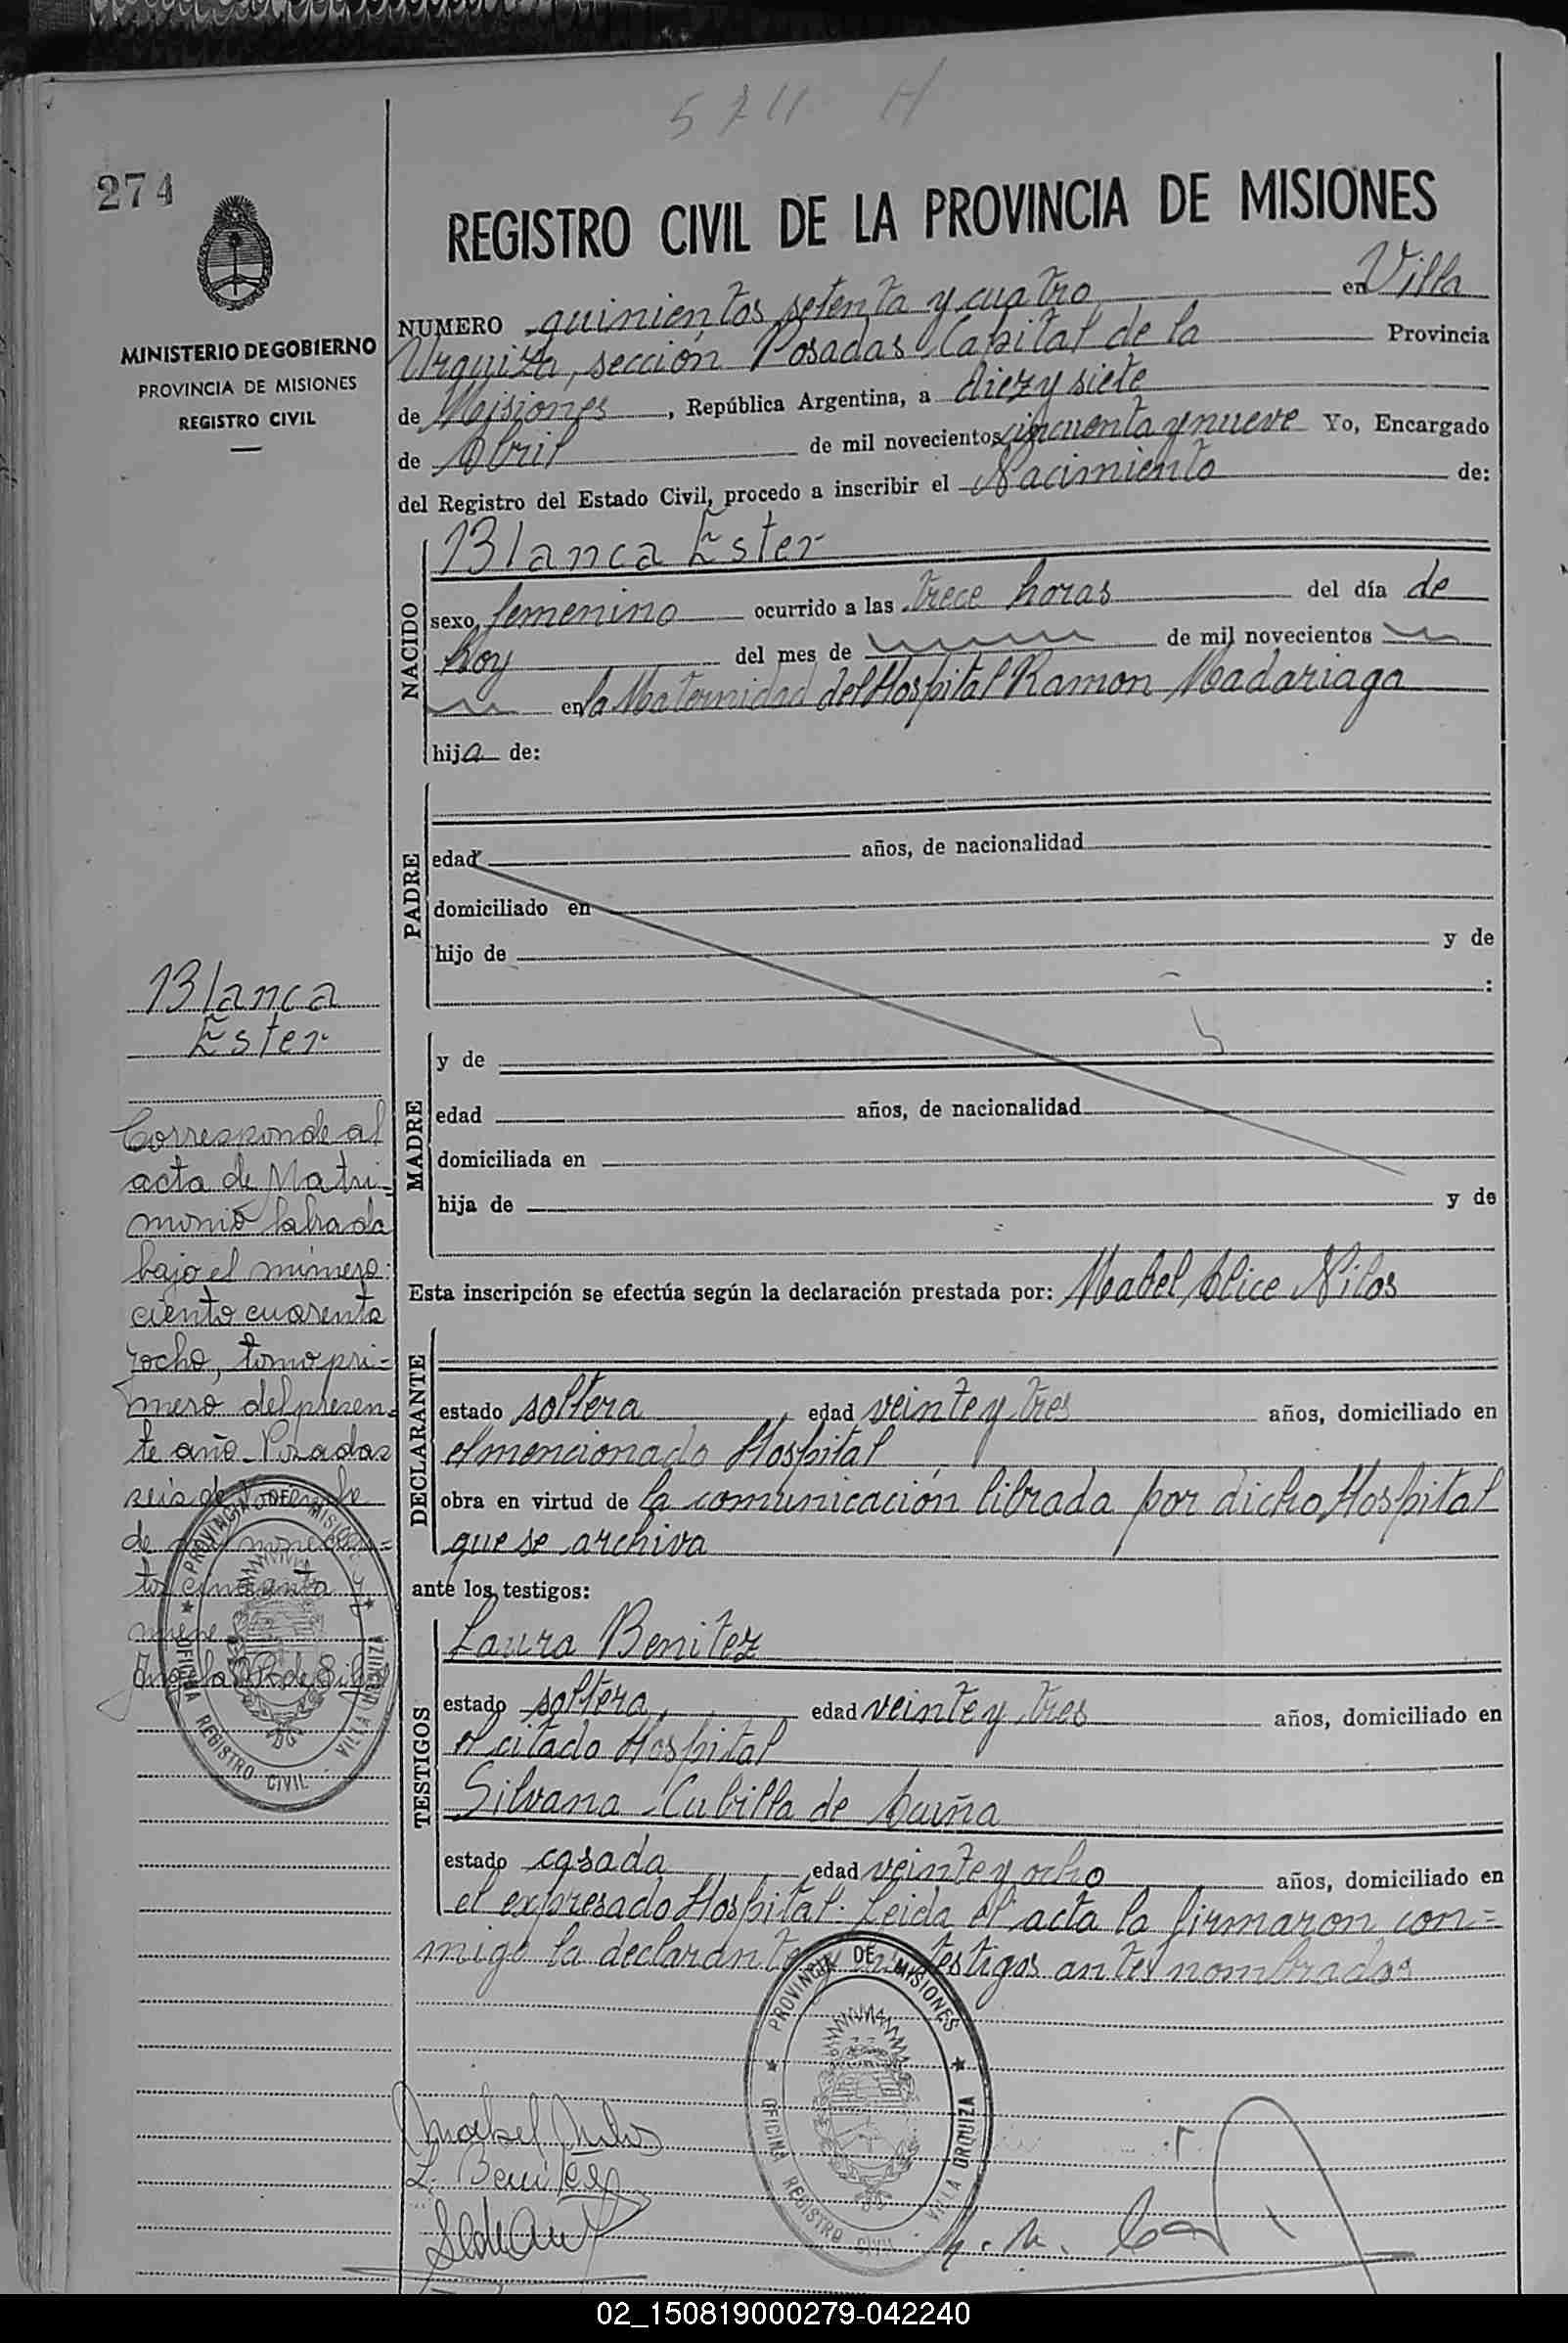 5711 H
274
REGISTRO CIVIL DE LA PROVINCIA DE MISIONES
MINISTERIO DE GOBIERNO
PROVINCIA DE MISIONES
REGISTRO CIVIL
NUMERO quinientos setenta y cuatro en Villa
Urquiza, sección Posadas Capital de la Provincia
de Misiones, República Argentina, a diez y siete
de Abril de mil novecientos cincuenta y nueve Yo, Encargado
del Registro del Estado Civil, procedo a inscribir el Nacimiento de:
NACIDO
Blanca Ester
sexo femenino ocurrido a las trece horas del día de
hoy del mes de de mil novecientos
en la Maternidad del Hospital Ramon Madariaga
hija de:
PADRE
edad años, de nacionalidad
domiciliado en
hijo de y de
:
MADRE
y de
edad años, de nacionalidad
domiciliada en
hija de y de
Esta inscripción se efectúa según la declaración prestada por: Mabel Alice Nilos
DECLARANTE
estado soltera, edad veinte y tres años, domiciliado en
el mencionado Hospital
obra en virtud de la comunicación librada por dicho Hospital
que se archiva
ante los testigos:
TESTIGOS
Laura Benitez
estado soltera, edad veinte y tres años, domiciliado en
el citado Hospital
Silvana Cubilla de
estado casada edad veinte y ocho años, domiciliado en
el expresado Hospital. Leida el acta la firmaron con=
migo la declarante y los testigos antes nombrados
Blanca
Ester
Corresponde al
acta de Matri-
monio labrada
bajo el número
ciento cuarenta
y ocho, tomo pri-
mero del presen-
te año. Posadas
seis de
de mil novecien=
tos cincuenta y
nueve
PROVINCIA DE MISIONES
OFICINA REGISTRO CIVIL - VILLA URQUIZA
Mabel Nilos
L. Benitez
PROVINCIA DE MISIONES
OFICINA REGISTRO CIVIL - VILLA URQUIZA
02_150819000279-042240